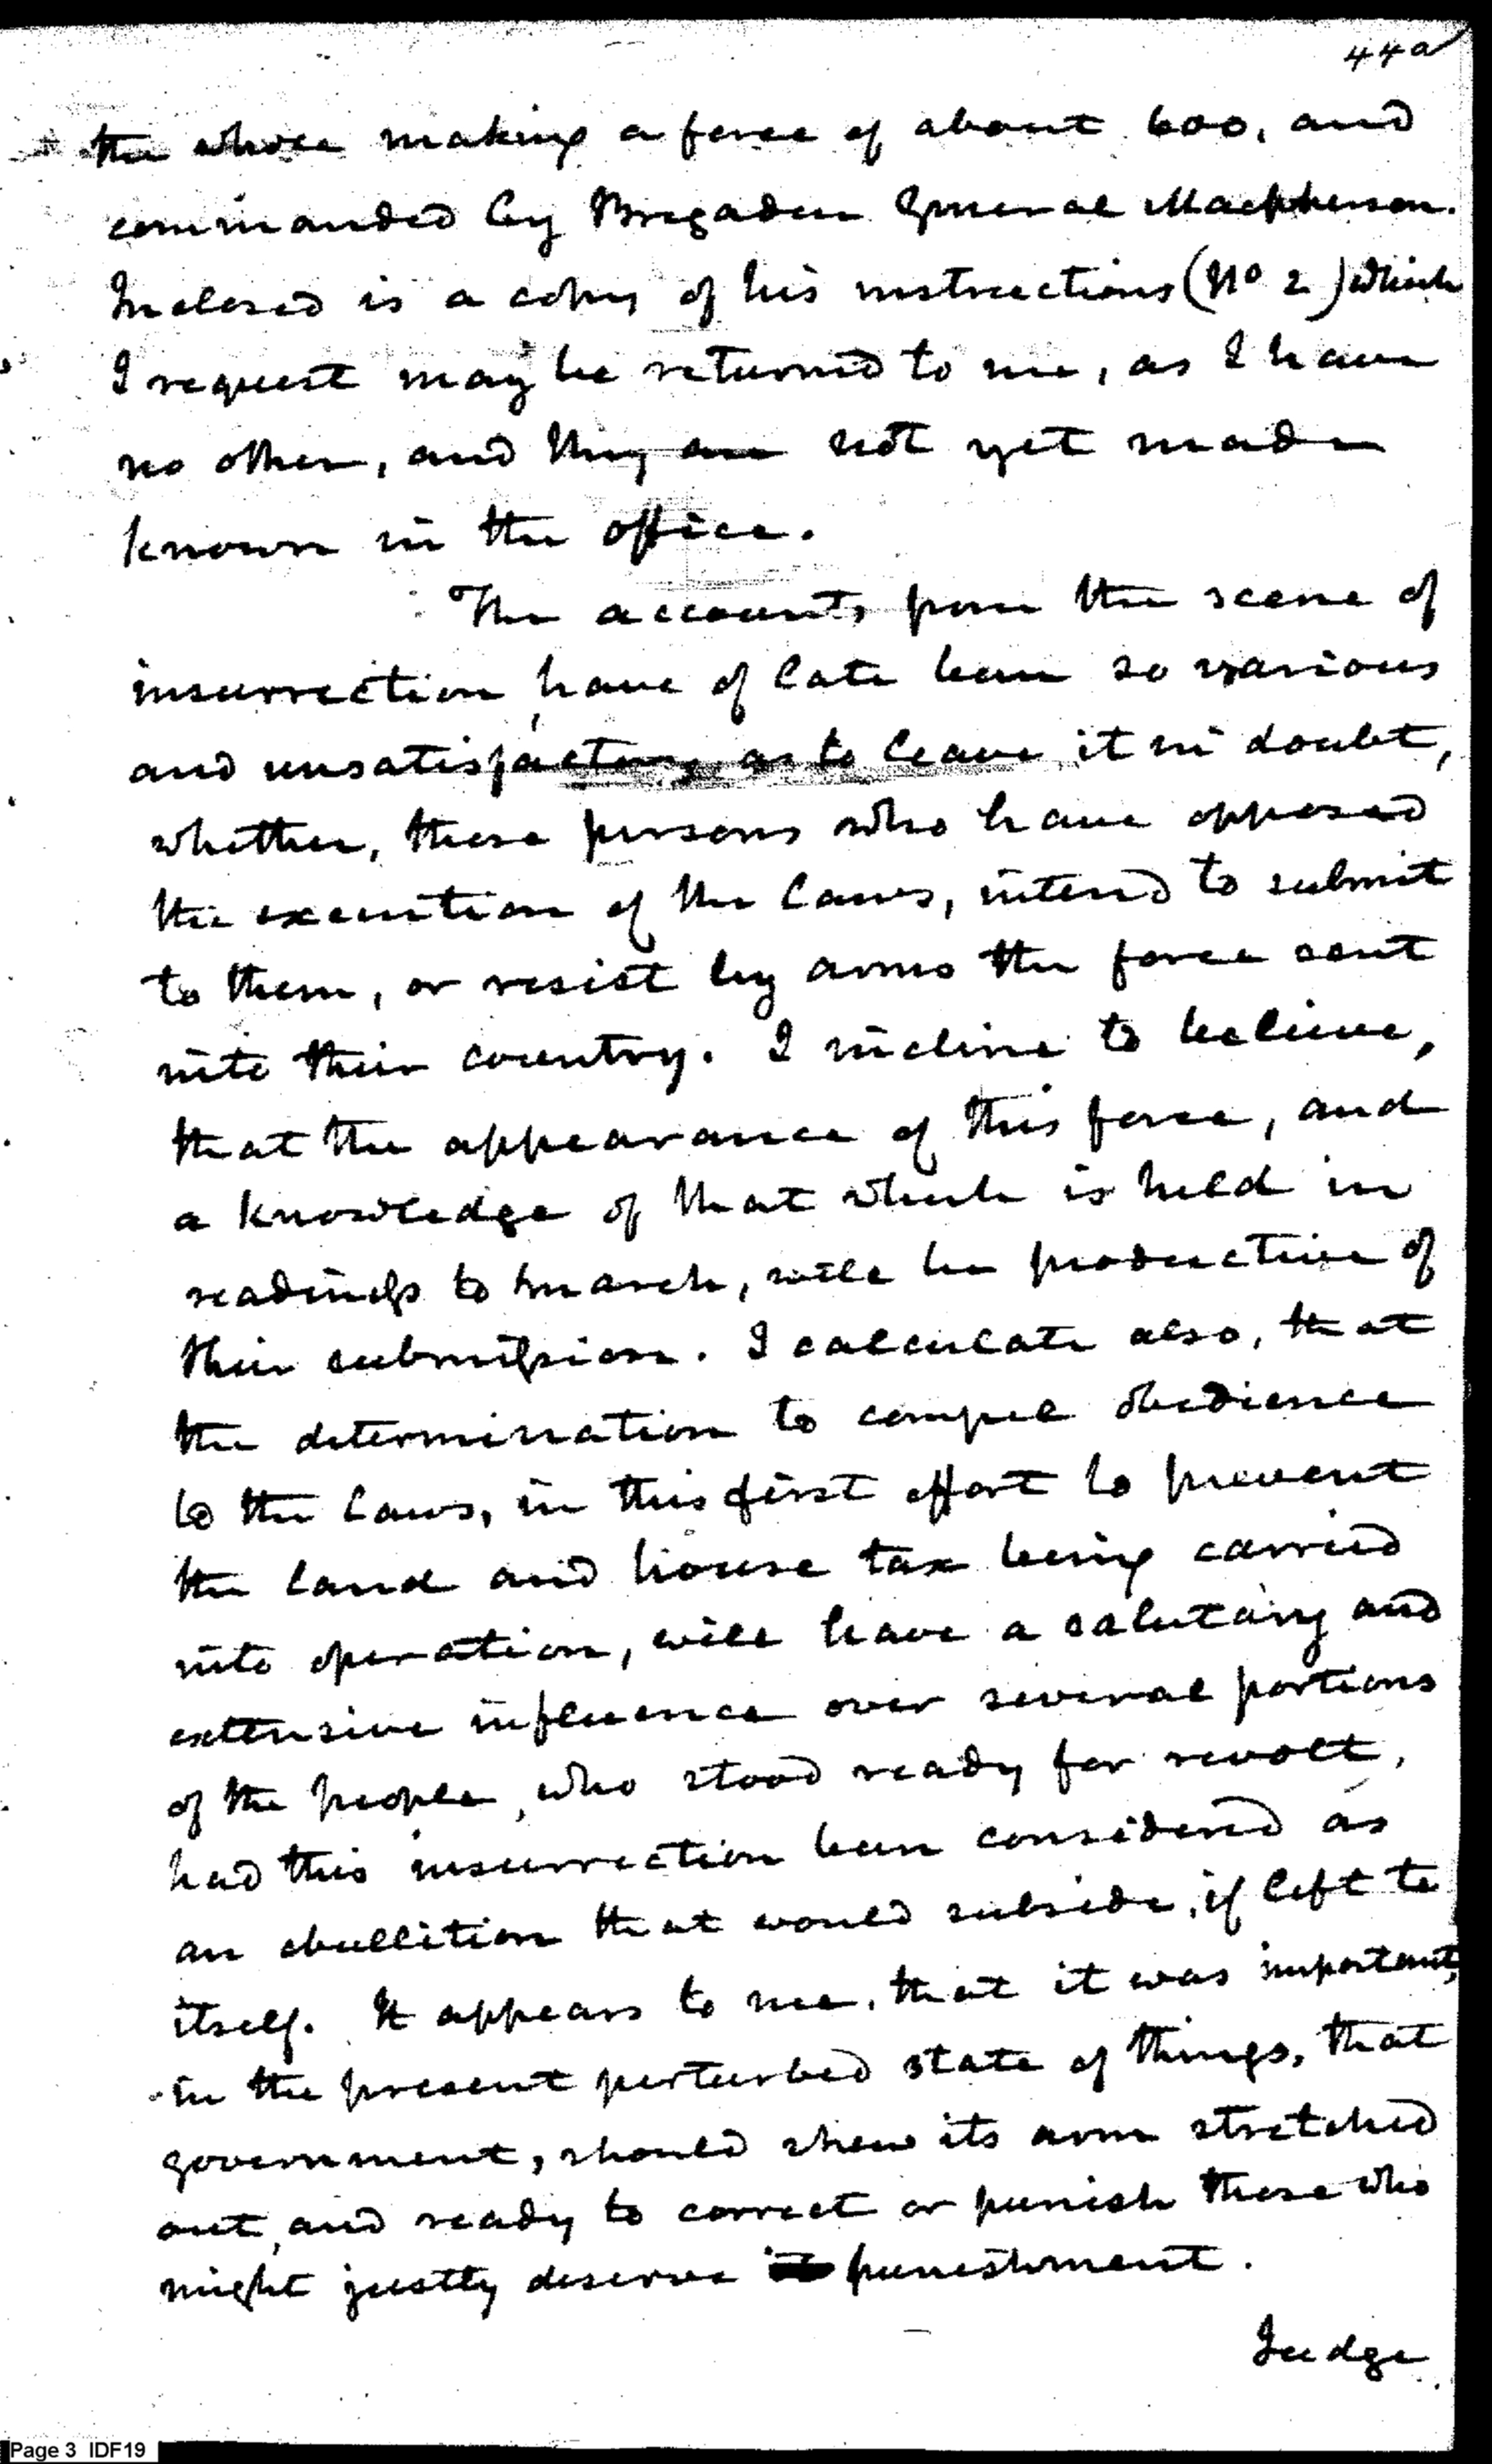 44a
the whole making a force of about 600, and
commanded by Brigadier General Macpherson.
Inclosed is a copy of his instructions (No 2) which
I request may be returned to me, as I have
no other, and they are not yet made
known in the office.
The accounts from the scene of
insurrection, have of late been so various
and unsatisfactory as to leave it in doubt,
whether, those persons who have opposed
the execution of the laws, intend to submit
to them, or resist by arms the force sent
into their country. I incline to believe,
that the appearance of this force, and
a knowledge of that which is held in
readiness to march, will be productive of
their submission. I calculate also, that
the determination to compel obedience
to the laws, in this first effort to prevent
the land and house tax being carried
into operation, will have a salutary and
extensive influence over several portions
of the people, who stood ready for revolt,
had this insurrection been considered as
an ebullition that would subside, if left to
itself. It appears to me, that it was important,
in the present perturbed state of things, that
government, should shew its arm stretched
out, and ready to correct or punish those who
might justly deserve punishment.
Judge
Page 3 IDF19